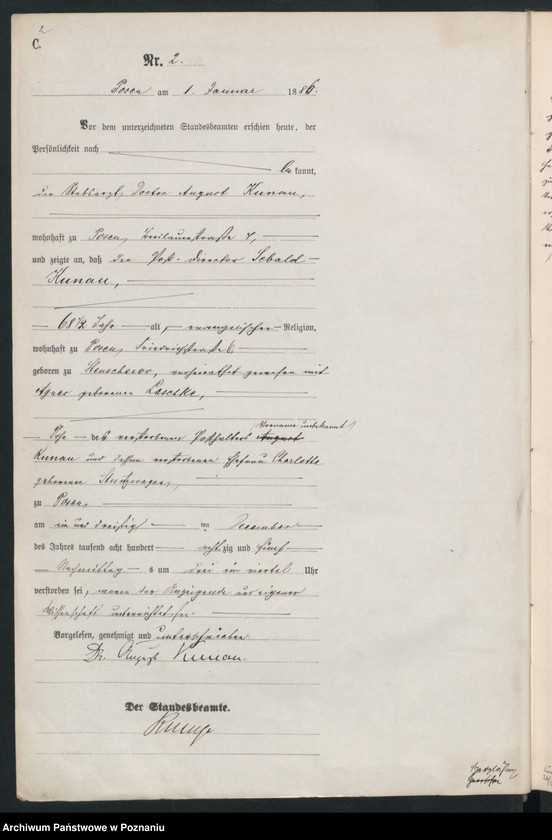 C.
2
Nr. 2.
Posen am 1. Januar 1886.
Vor dem unterzeichneten Standesbeamten erschien heute, der
Persönlichkeit nach
bekannt,
der Stabsarzt, Doctor August Kunau,
wohnhaft zu Posen, Breslauerstraße 4,
und zeigte an, daß der Post-Director Sebald
Kunau,
68 1/2 Jahr alt, evangelischer Religion,
wohnhaft zu Posen, Friedrichstraße
geboren zu verheirathet gewesen mit
Agnes geborenen Laschke,
(Vorname unbekannt)
des verstorbenen Posthalters August
Kunau und dessen verstorbenen Ehefrau Charlotte
geborenen
zu Posen,
am ein und dreißig ten December
des Jahres tausend acht hundert achtzig und fünf
Nachmittag s um drei ein viertel Uhr
verstorben sei, wovon der Anzeigende aus eigener
Wissenschaft unterrichtet sei.
Vorgelesen, genehmigt und unterschrieben
Dr. August Kunau.
Der Standesbeamte.
Archiwum Państwowe w Poznaniu